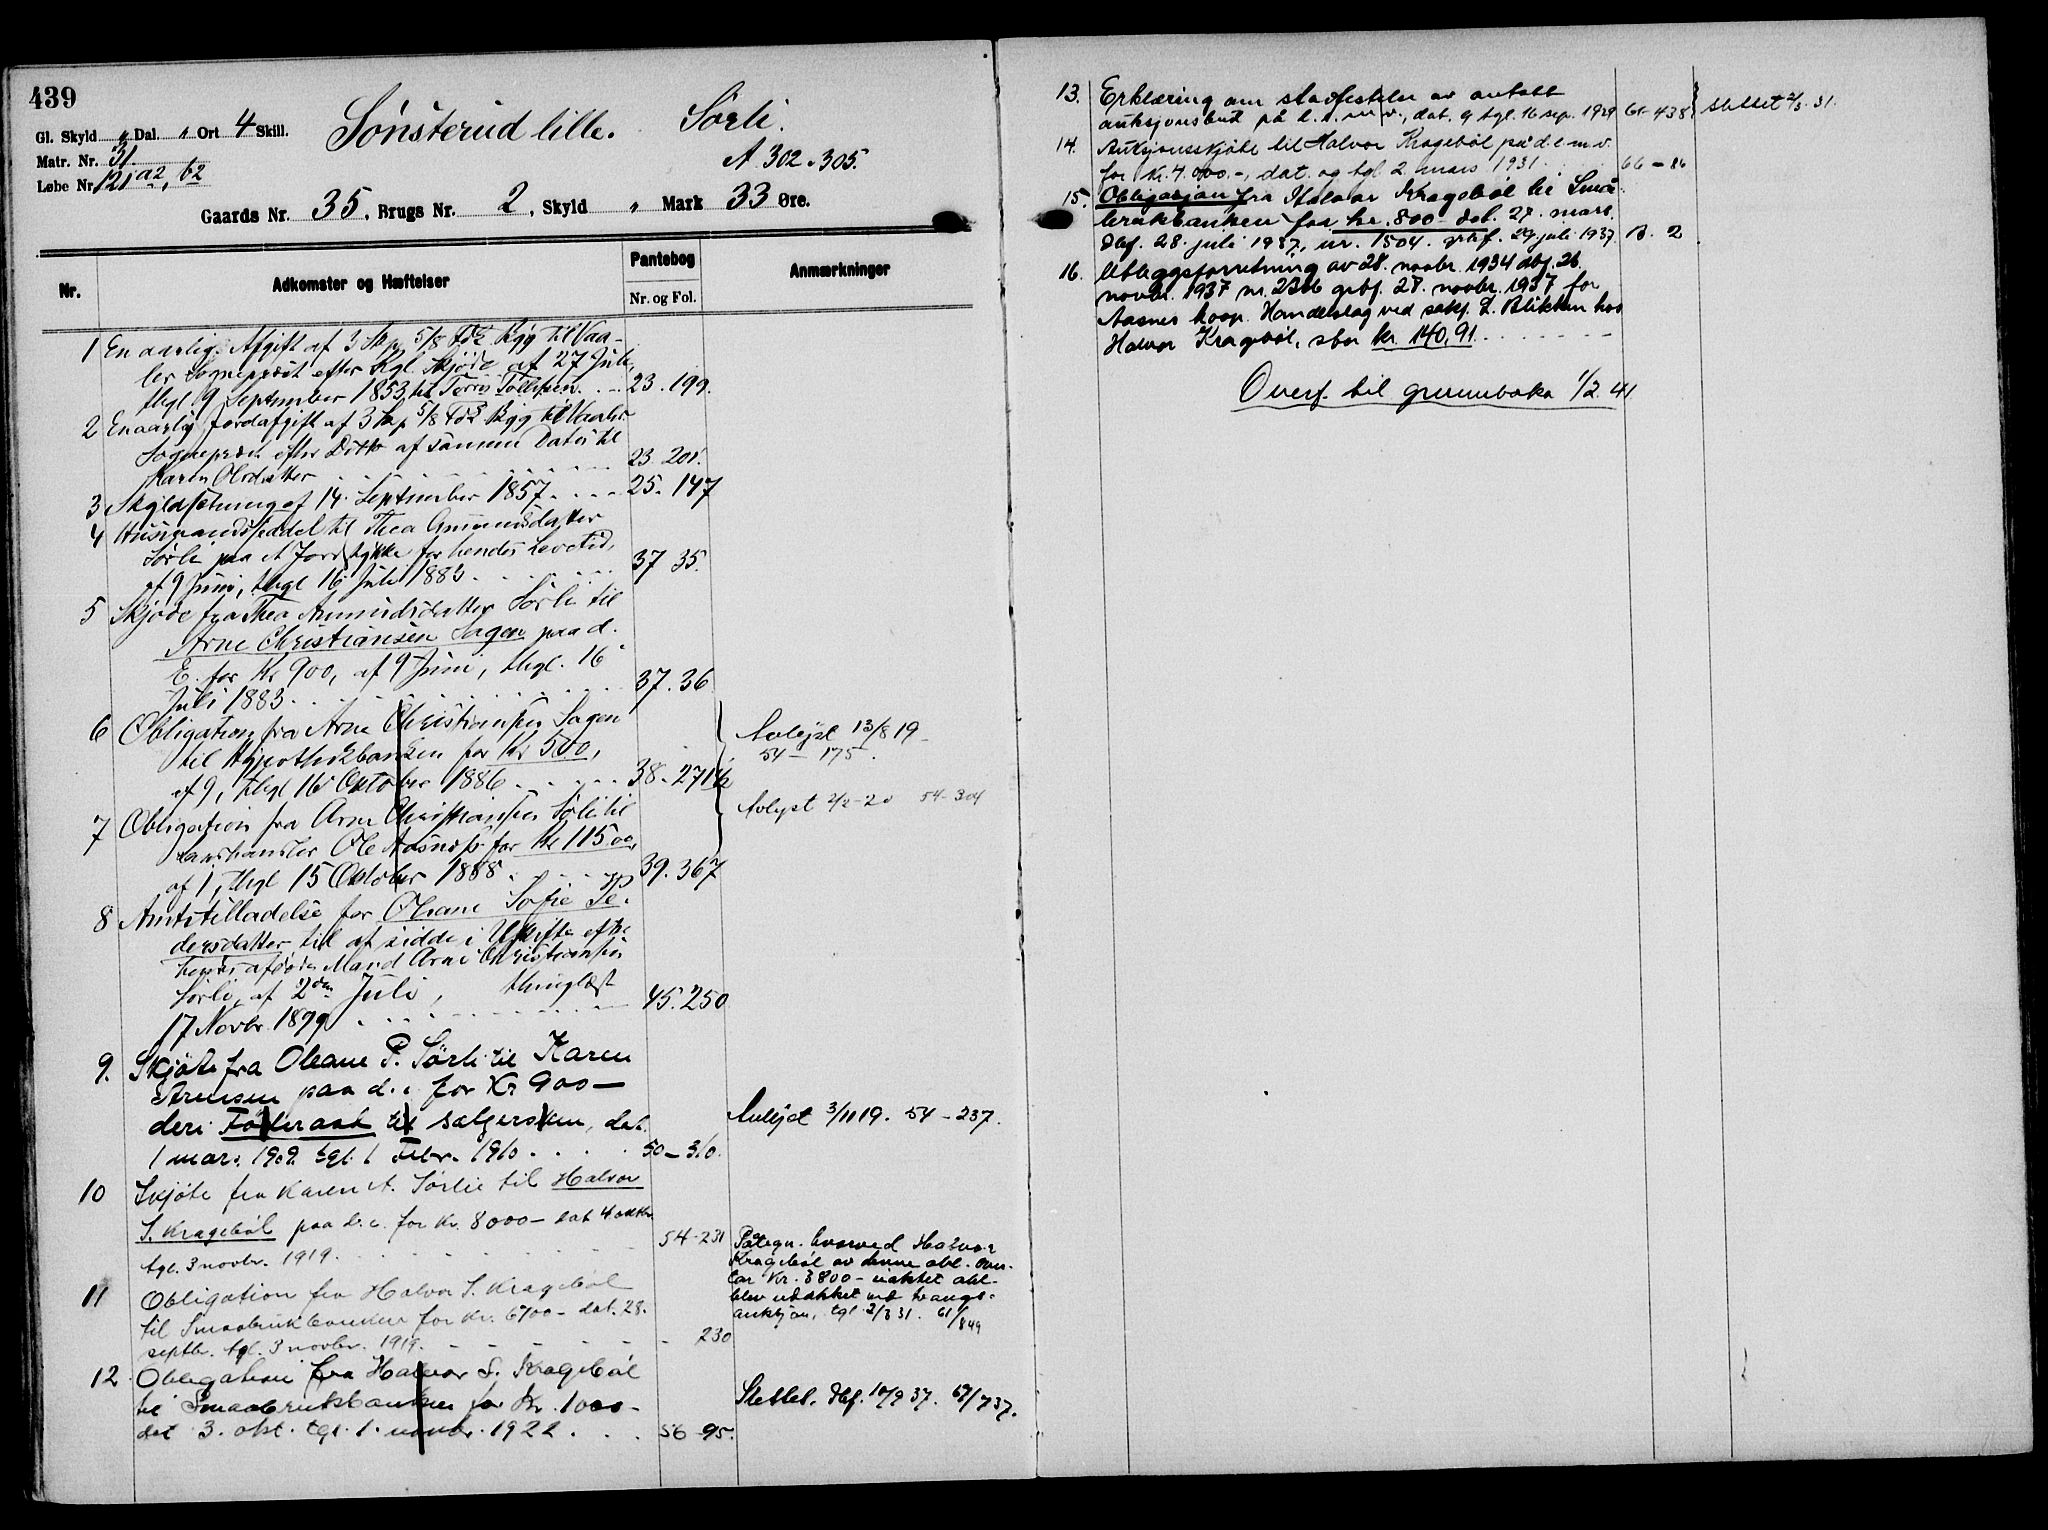 439
Gl. Skyld „ Dal. „ Ort 4 Skill.
Matr. Nr. 31.
Løbe Nr. 121 a2, b2
Sønsterud lille.
Sørli.
A 302 - 305.
Gaards Nr. 35, Brugs Nr. 2, Skyld „ Mark 33 Øre.
Nr.
Adkomster og Hæftelser
Pantebog
Nr. og Fol.
Anmærkninger
1 En aarlig Afgift af 3 Skp 5/8 Fdk Byg til Vaa-
ler Sognepræst efter Kgl. Skjøde af 27 Juli,
thgl 9 September 1853 til Torris Tollefsen 23. 199.
2 En aarlig Jordafgift af 3 Skp 5/8 Fdk Byg til Vaaler
Sognepræst efter Ditto af samme Dato til
Karen Olsdatter 23 201.
3 Skyldsetning af 14. September 1857 25. 147
4 Husmandsseddel til Thea Amundsdatter
Sørli paa et Jordstykke for hendes Levetid,
af 9 Juni, thgl 16 Juli 1883 37 35.
5 Skjøde fra Thea Amundsdatter Sørli til
Arne Christiansen Sagen paa d.
E. for Kr 900, af 9 Juni, thgl. 16
Juli 1883 37. 36
6 Obligation fra Arne Christiansen Sagen
til Hypothekbanken for Kr 500,
af 9, thgl 16 Oktober 1886 38. 271½
Avlyst 13/8 19 -
54 - 175.
7 Obligation fra Arne Christiansen Sørli til
Landhandler Ole Aasnæs for Kr 115.00,
af 1, thgl 15 Oktober 1888 39. 367
Avlyst 2/2-20 54-304
8 Amtstilladelse for Oleane Sofie Pe-
dersdatter til at sidde i Uskifte efter
hendes afdøde Mand Arne Christiansen
Sørli, af 2den Juli, thinglæst
17 Novbr. 1899 45. 250
9. Skjøte fra Oleane P. Sørli til Karen
Arnesen paa d. e. for Kr 900 —
deri Føderaad til sælgersken, dat.
1 mars 1909. tgl. 1 Febr. 1910 50 - 310.
Avlyst 3/11 19. 54 - 237.
10 Skjøte fra Karen A. Sørlie til Halvor
S. Kragebøl paa d. e. for Kr. 8000 - dat 4 oktbr.
tgl. 3 novbr. 1919. 54-231
11 Obligation fra Halvor S. Kragebøl
til Smaabrukbanken for Kr. 6700 - dat. 28.
septbr. tgl. 3 novbr. 1919. - 230
Påtegn. hvorved Halvor
Kragebøl av denne obl. over-
tar Kr. 3800 - uaktet obl.
blev udækket ved tvangs-
auksjon, tgl 2/3 31. 61/849
12 Obligation fra Halvor S. Kragebøl
til Smaabrukbanken for Kr. 1000 -
dat 3. okt. tgl. 1. novbr. 1922. 56 - 95.
Slettet. Dbf. 10/9 37. 67/737.
13. Erklæring om stadfestelse av antatt
auksjonsbud på d. e. m. v., dat. 9 tgl. 16 sep. 1929 61-438
Slettet 2/3. 31.
14. Auksjonsskjøte til Halvor Kragebøl på d. e. m. v.
for kr. 4.000.-, dat. og tgl 2. mars 1931 66 - 86
15. Obligasjon fra Halvor Kragebøl til Små-
brukbanken for kr. 800 dat. 27. mars.
dbf. 28. juli 1937, nr. 1504. grbf. 29 juli 1937. B. 2
16. Utleggsforretning av 28. novbr. 1934 dbf. 26.
novbr. 1937 nr. 2306 grbf. 27. novbr. 1937 for
Aasnes koop. Handelslag ved sakf. L. Blikken hos
Halvor Kragebøl, stor kr. 140,91.
Overf. til grunnboka 1/2. 41